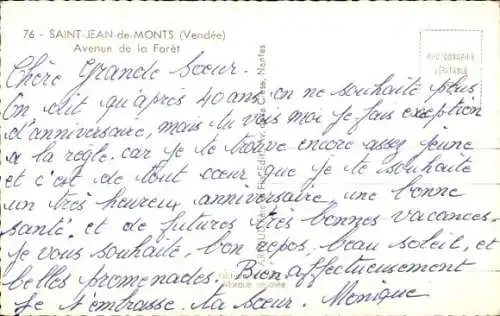 76 - SAINT-JEAN-de-MONTS (Vendée)
Avenue de la Forêt
PHOTOGRAPHIE
VÉRITABLE
Chère Grande Sœur.
On dit qu'après 40 ans on ne souhaite plus
d'anniversaire, mais tu vois moi je fais exception
a la règle. car je te trouve encore assez jeune
et c'est de tout cœur que je te souhaite
un très heureux anniversaire, une bonne
santé. et de futures très bonnes vacances.
je vous souhaite, bon repos, beau soleil, et
belles promenades. Bien affectueusement
Je t'embrasse. ta sœur. Monique
Nantes